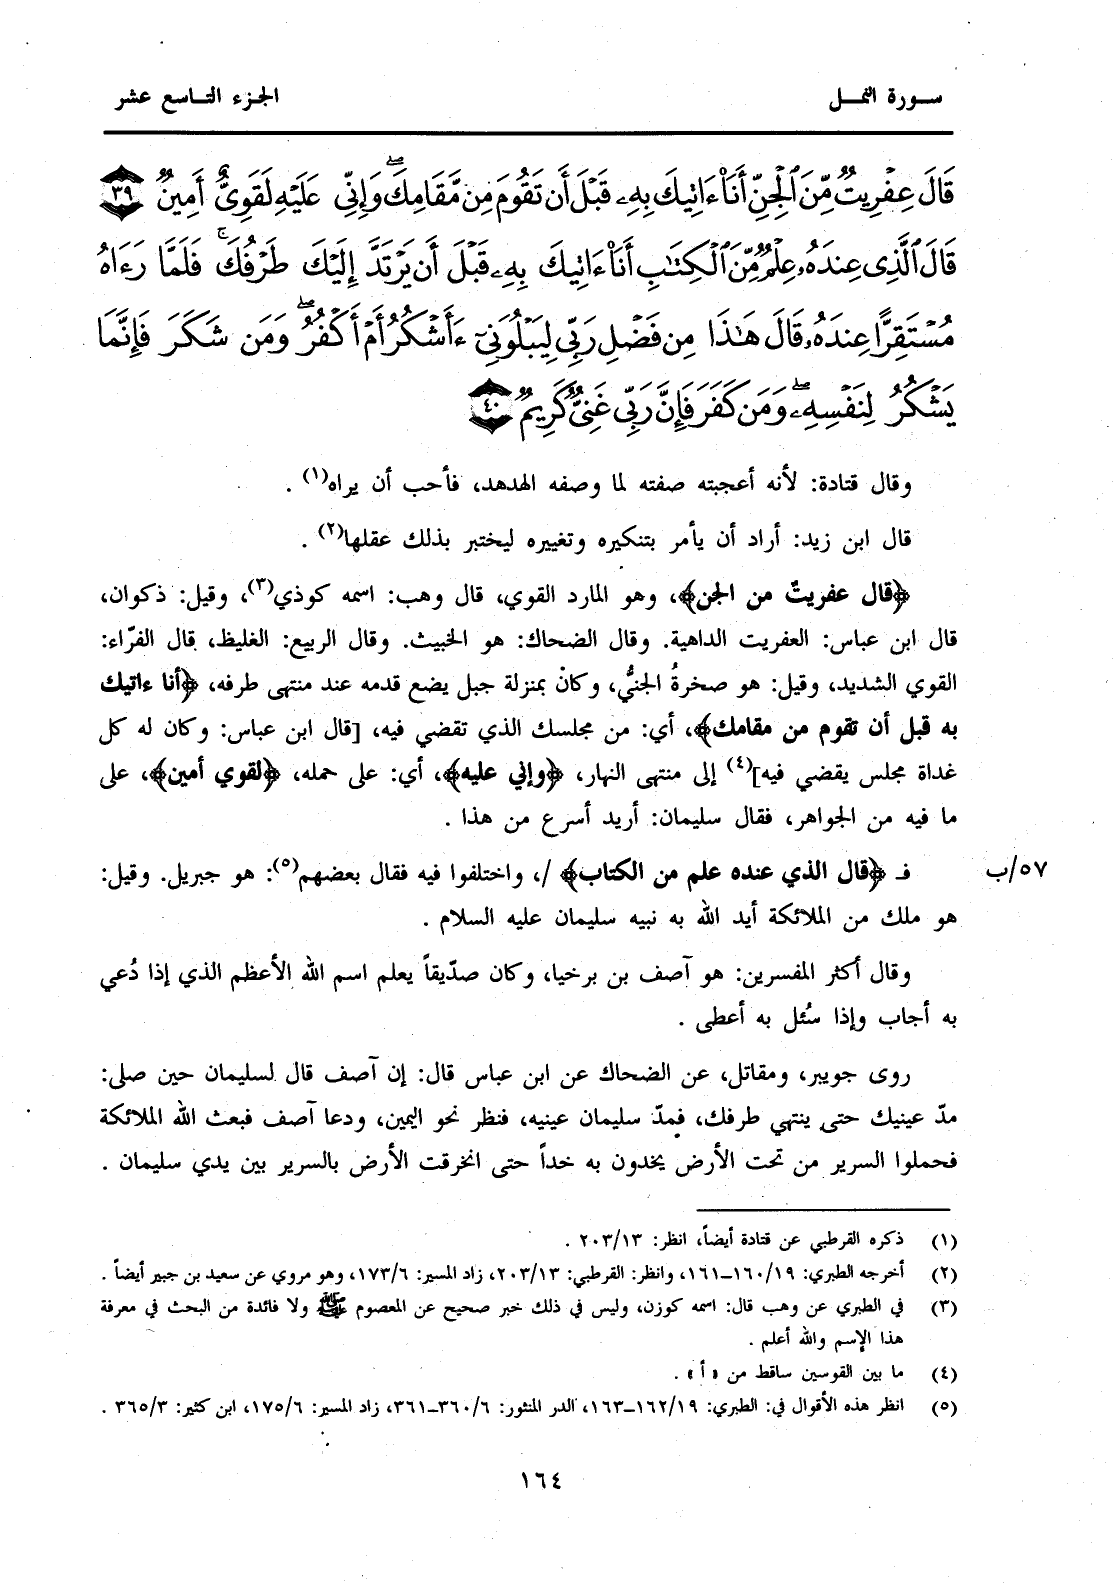 سورة النمل
الجزء التاسع عشر
قَالَ عِفْرِيتٌ مِّنَ ٱلْجِنِّ أَنَا۠ ءَاتِيكَ بِهِۦ قَبْلَ أَن تَقُومَ مِن مَّقَامِكَ ۖ وَإِنِّى عَلَيْهِ لَقَوِىٌّ أَمِينٌ ٣٩
قَالَ ٱلَّذِى عِندَهُۥ عِلْمٌ مِّنَ ٱلْكِتَٰبِ أَنَا۠ ءَاتِيكَ بِهِۦ قَبْلَ أَن يَرْتَدَّ إِلَيْكَ طَرْفُكَ ۚ فَلَمَّا رَءَاهُ
مُسْتَقِرًّا عِندَهُۥ قَالَ هَٰذَا مِن فَضْلِ رَبِّى لِيَبْلُوَنِىٓ ءَأَشْكُرُ أَمْ أَكْفُرُ ۖ وَمَن شَكَرَ فَإِنَّمَا
يَشْكُرُ لِنَفْسِهِۦ ۖ وَمَن كَفَرَ فَإِنَّ رَبِّى غَنِىٌّ كَرِيمٌ ٤٠
وقال قتادة: لأنه أعجبته صفته لما وصفه الهدهد، فأحب أن يراه(١) .
قال ابن زيد: أراد أن يأمر بتنكيره وتغييره ليختبر بذلك عقلها(٢) .
﴿قال عفريتٌ من الجن﴾، وهو المارد القوي، قال وهب: اسمه كوذي(٣)، وقيل: ذكوان،
قال ابن عباس: العفريت الداهية. وقال الضحاك: هو الخبيث. وقال الربيع: الغليظ، قال الفرّاء:
القوي الشديد، وقيل: هو صخرةُ الجنيُّ، وكانْ بمنزلة جبل يضع قدمه عند منتهى طرفه، ﴿أنا ءاتيك
به قبل أن تقوم من مقامك﴾، أي: من مجلسك الذي تقضي فيه، [قال ابن عباس: وكان له كل
غداة مجلس يقضي فيه](٤) إلى منتهى النهار، ﴿وإني عليه﴾، أي: على حمله، ﴿لقوي أمين﴾، على
ما فيه من الجواهر، فقال سليمان: أريد أسرع من هذا .
فـ ﴿قال الذي عنده علم من الكتاب﴾ /، واختلفوا فيه فقال بعضهم(٥): هو جبريل. وقيل:
٥٧/ب
هو ملك من الملائكة أيد الله به نبيه سليمان عليه السلام .
وقال أكثر المفسرين: هو آصف بن برخيا، وكان صدّيقاً يعلم اسم الله الأعظم الذي إذا دُعي
به أجاب وإذا سُئل به أعطى .
روى جويبر، ومقاتل، عن الضحاك عن ابن عباس قال: إن آصف قال لسليمان حين صلى:
مدّ عينيك حتى ينتهي طرفك، فمدّ سليمان عينيه، فنظر نحو اليمين، ودعا آصف فبعث الله الملائكة
فحملوا السرير من تحت الأرض يخدون به خداً حتى انخرقت الأرض بالسرير بين يدي سليمان .
(١) ذكره القرطبي عن قتادة أيضاً، انظر: ٢٠٣/١٣ .
(٢) أخرجه الطبري: ١٦٠/١٩ــ١٦١، وانظر: القرطبي: ٢٠٣/١٣، زاد المسير: ١٧٣/٦، وهو مروي عن سعيد بن جبير أيضاً .
(٣) في الطبري عن وهب قال: اسمه كوزن، وليس في ذلك خبر صحيح عن المعصوم ﷺ ولا فائدة من البحث في معرفة
هذا الإسم والله أعلم .
(٤) ما بين القوسين ساقط من «أ» .
(٥) انظر هذه الأقوال في: الطبري: ١٦٢/١٩ــ١٦٣، الدر المنثور: ٣٦٠/٦ــ٣٦١، زاد المسير: ١٧٥/٦، ابن كثير: ٣٦٥/٣ .
١٦٤